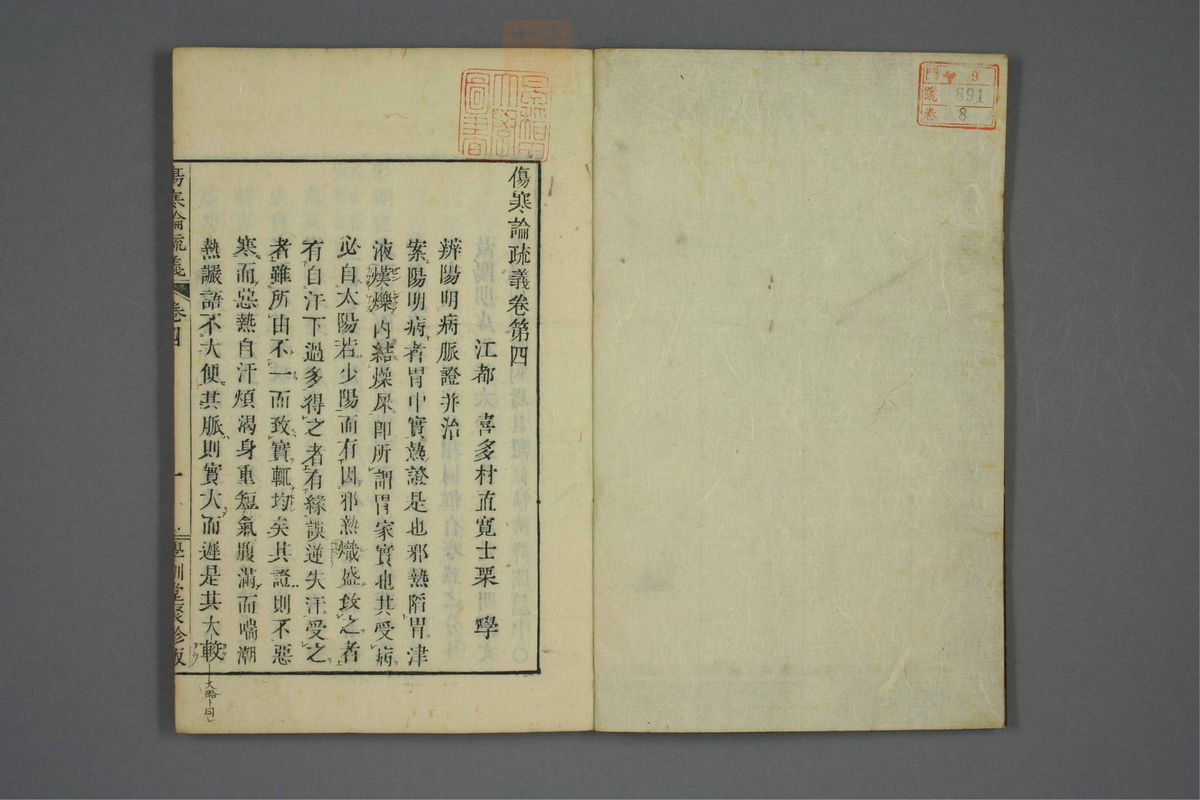 門 9
號 891
卷 8
傷寒論疏義卷第四
江都 喜多村直寛士栗 學
辨陽明病脈證并治
案陽明病者胃中實熱證是也邪熱陷胃津
液熯爍內結燥屎即所謂胃家實也其受病
必自太陽若少陽而有因邪熱熾盛致之者
有自汗下過多得之者有緣誤逆失汗受之
者雖所由不一而致實輒均矣其證則不惡
寒而惡熱自汗煩渴身重短氣腹滿而喘潮
熱讝語不大便其脈則實大而遲是其大較
大略ト同シ
傷寒論疏義 卷四 一 學訓堂聚珍版